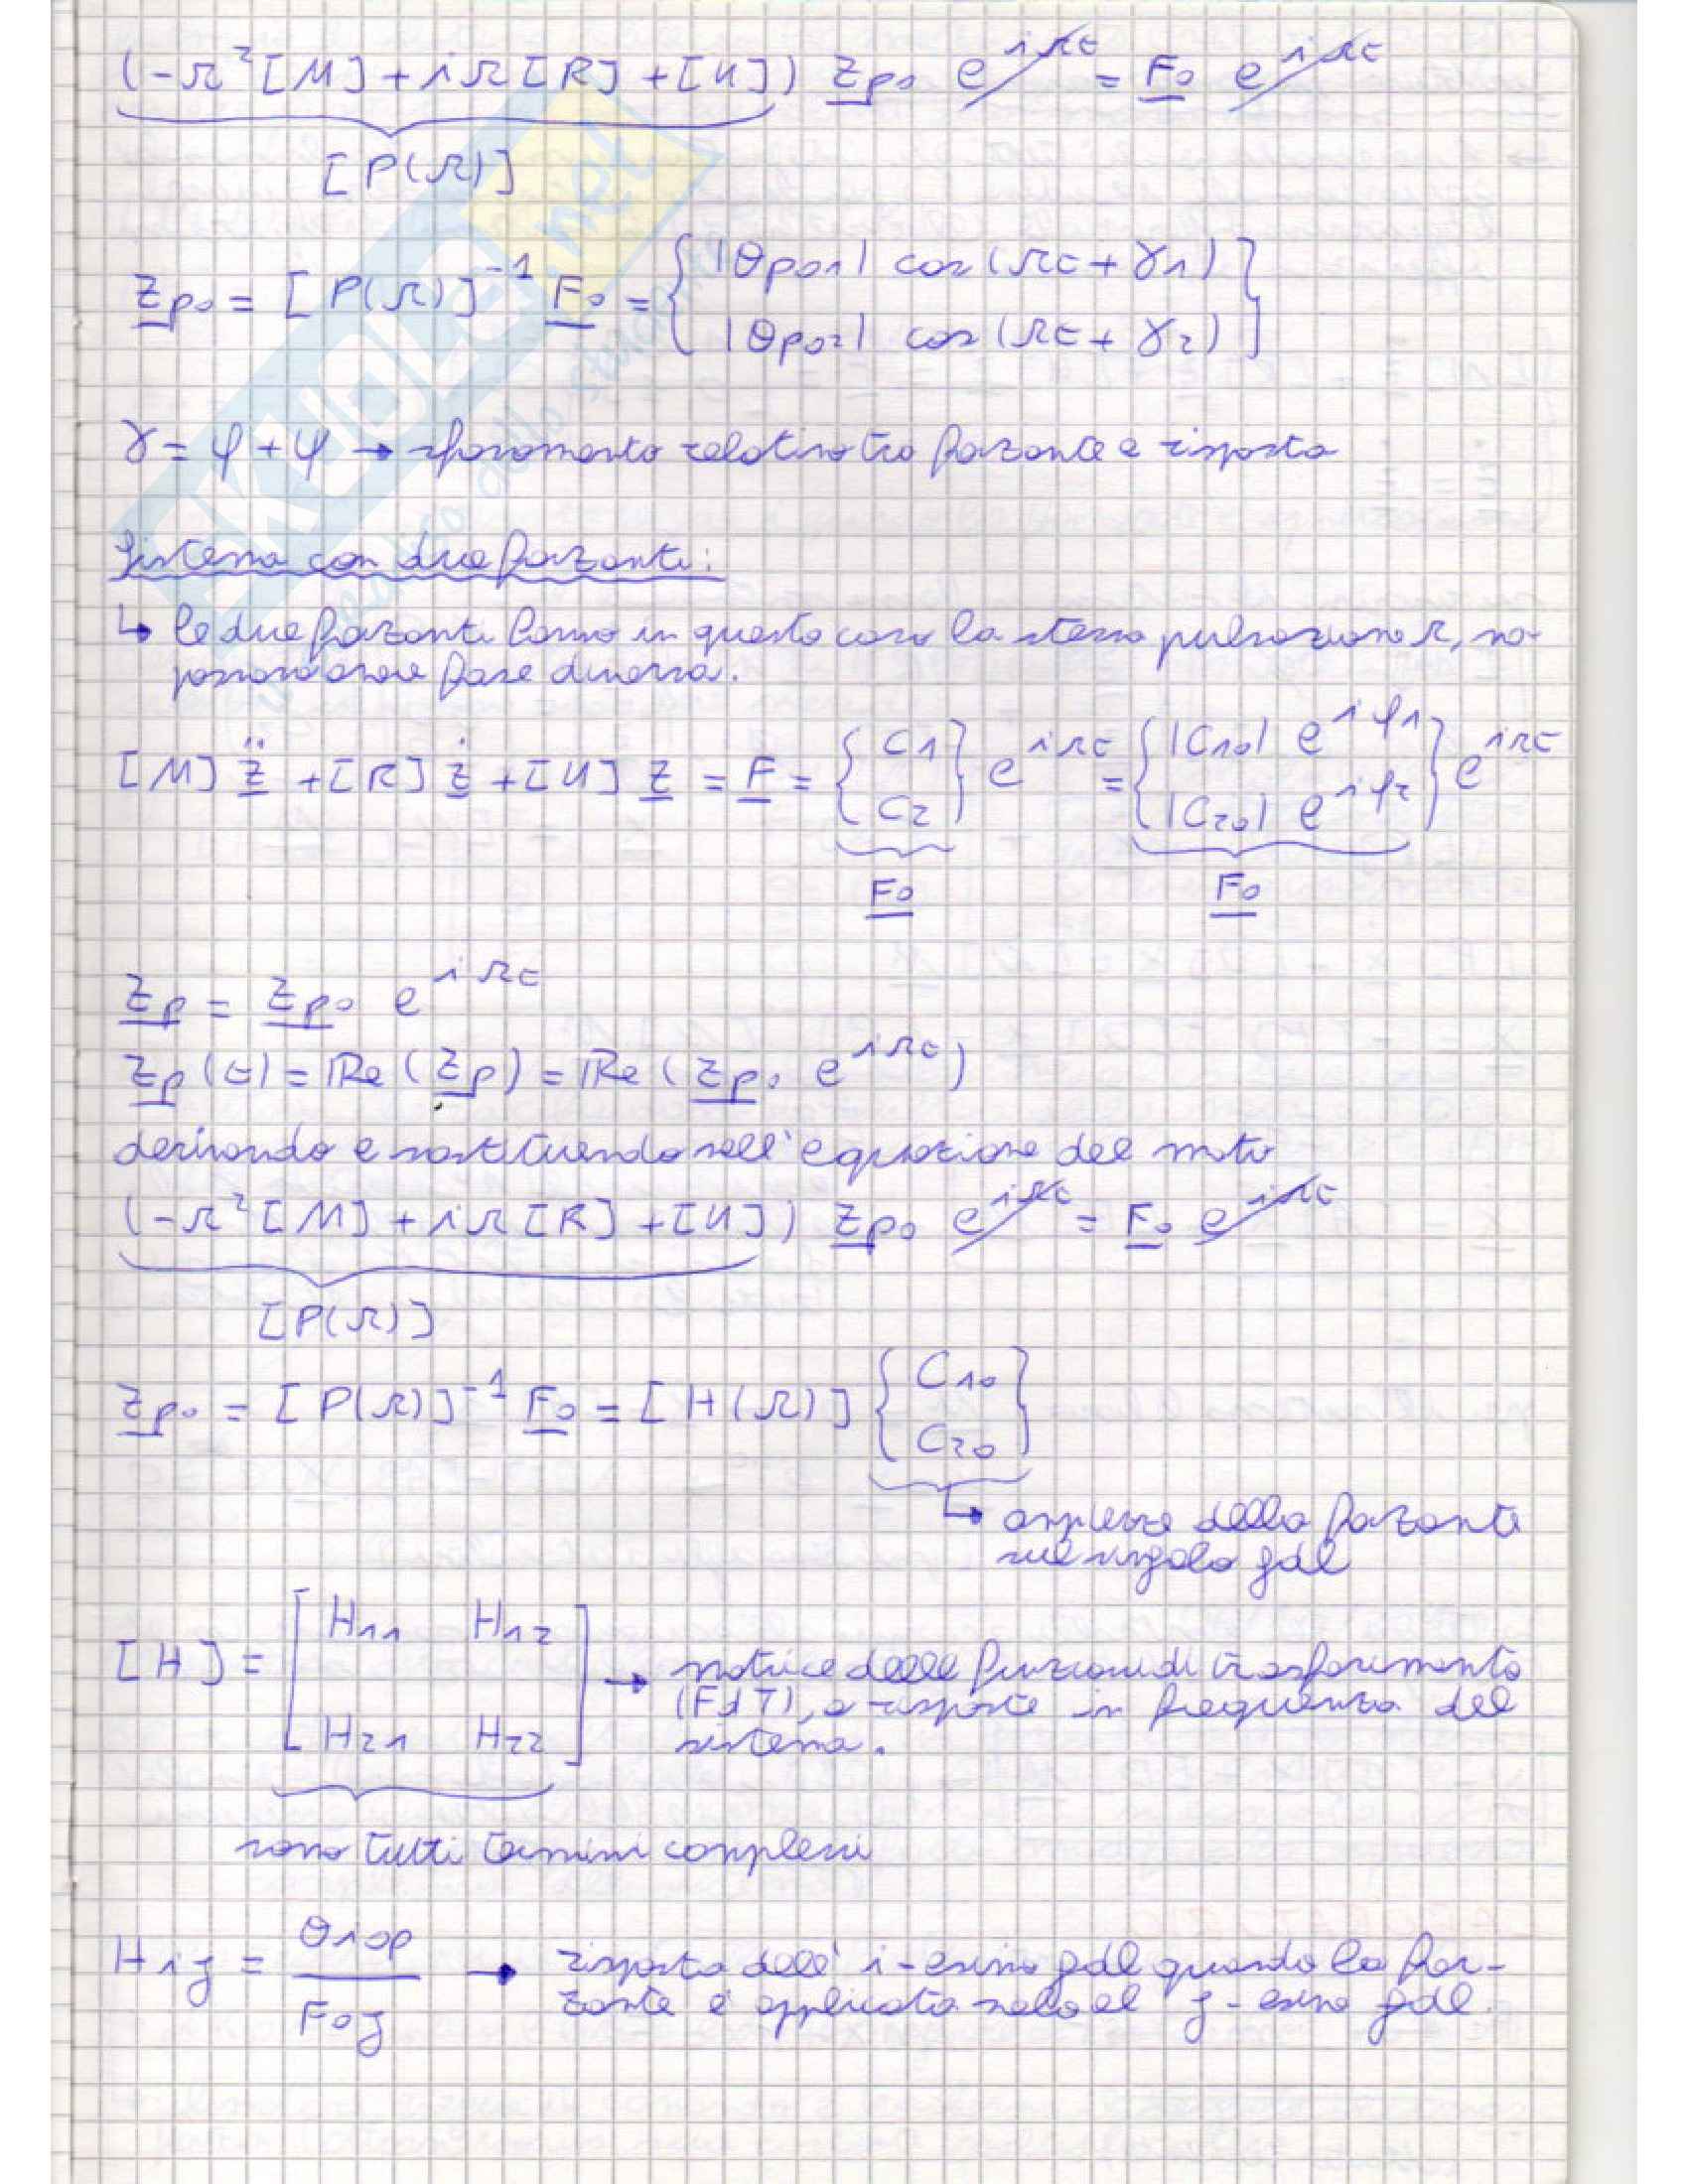 (-Ω²[M]+iΩ[R]+[K]) z_p0 e^{iΩt} = F_0 e^{iΩt}
[P(Ω)]
z_p0 = [P(Ω)]^{-1} F_0 = { |θ_p01| cos(Ωt+γ_1)
|θ_p02| cos(Ωt+γ_2) }
γ = φ + ψ → sfasamento relativo tra forzante e risposta
Sistema con due forzanti:
↳ le due forzanti hanno in questo caso la stessa pulsazione Ω, ma
possono avere fase diversa.
[M] z̈ + [R] ż + [K] z = F = { C_1 C_2 } e^{iΩt} = { |C_10| e^{iφ_1} |C_20| e^{iφ_2} } e^{iΩt}
F_0 F_0
z_p = z_p0 e^{iΩt}
z_p(t) = Re(z_p) = Re(z_p0 e^{iΩt})
derivando e sostituendo nell'equazione del moto
(-Ω²[M]+iΩ[R]+[K]) z_p0 e^{iΩt} = F_0 e^{iΩt}
[P(Ω)]
z_p0 = [P(Ω)]^{-1} F_0 = [H(Ω)] { C_10 C_20 }
↳ ampiezze della forzante
sul singolo gdl
[H] = [ H_11 H_12
H_21 H_22 ] → matrice delle funzioni di trasferimento
(FdT), o risposte in frequenza del
sistema.
sono tutti termini complessi
H_ij = θ_i0p / F_0j → risposta dell'i-esimo gdl quando la for-
zante è applicata solo al j-esimo gdl.
SKUOLA.net